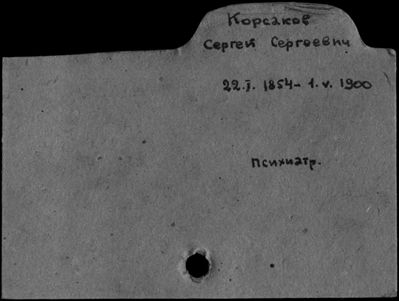 Корсаков
Сергей Сергеевич
22.I. 1854 - 1.V. 1900
Психиатр.